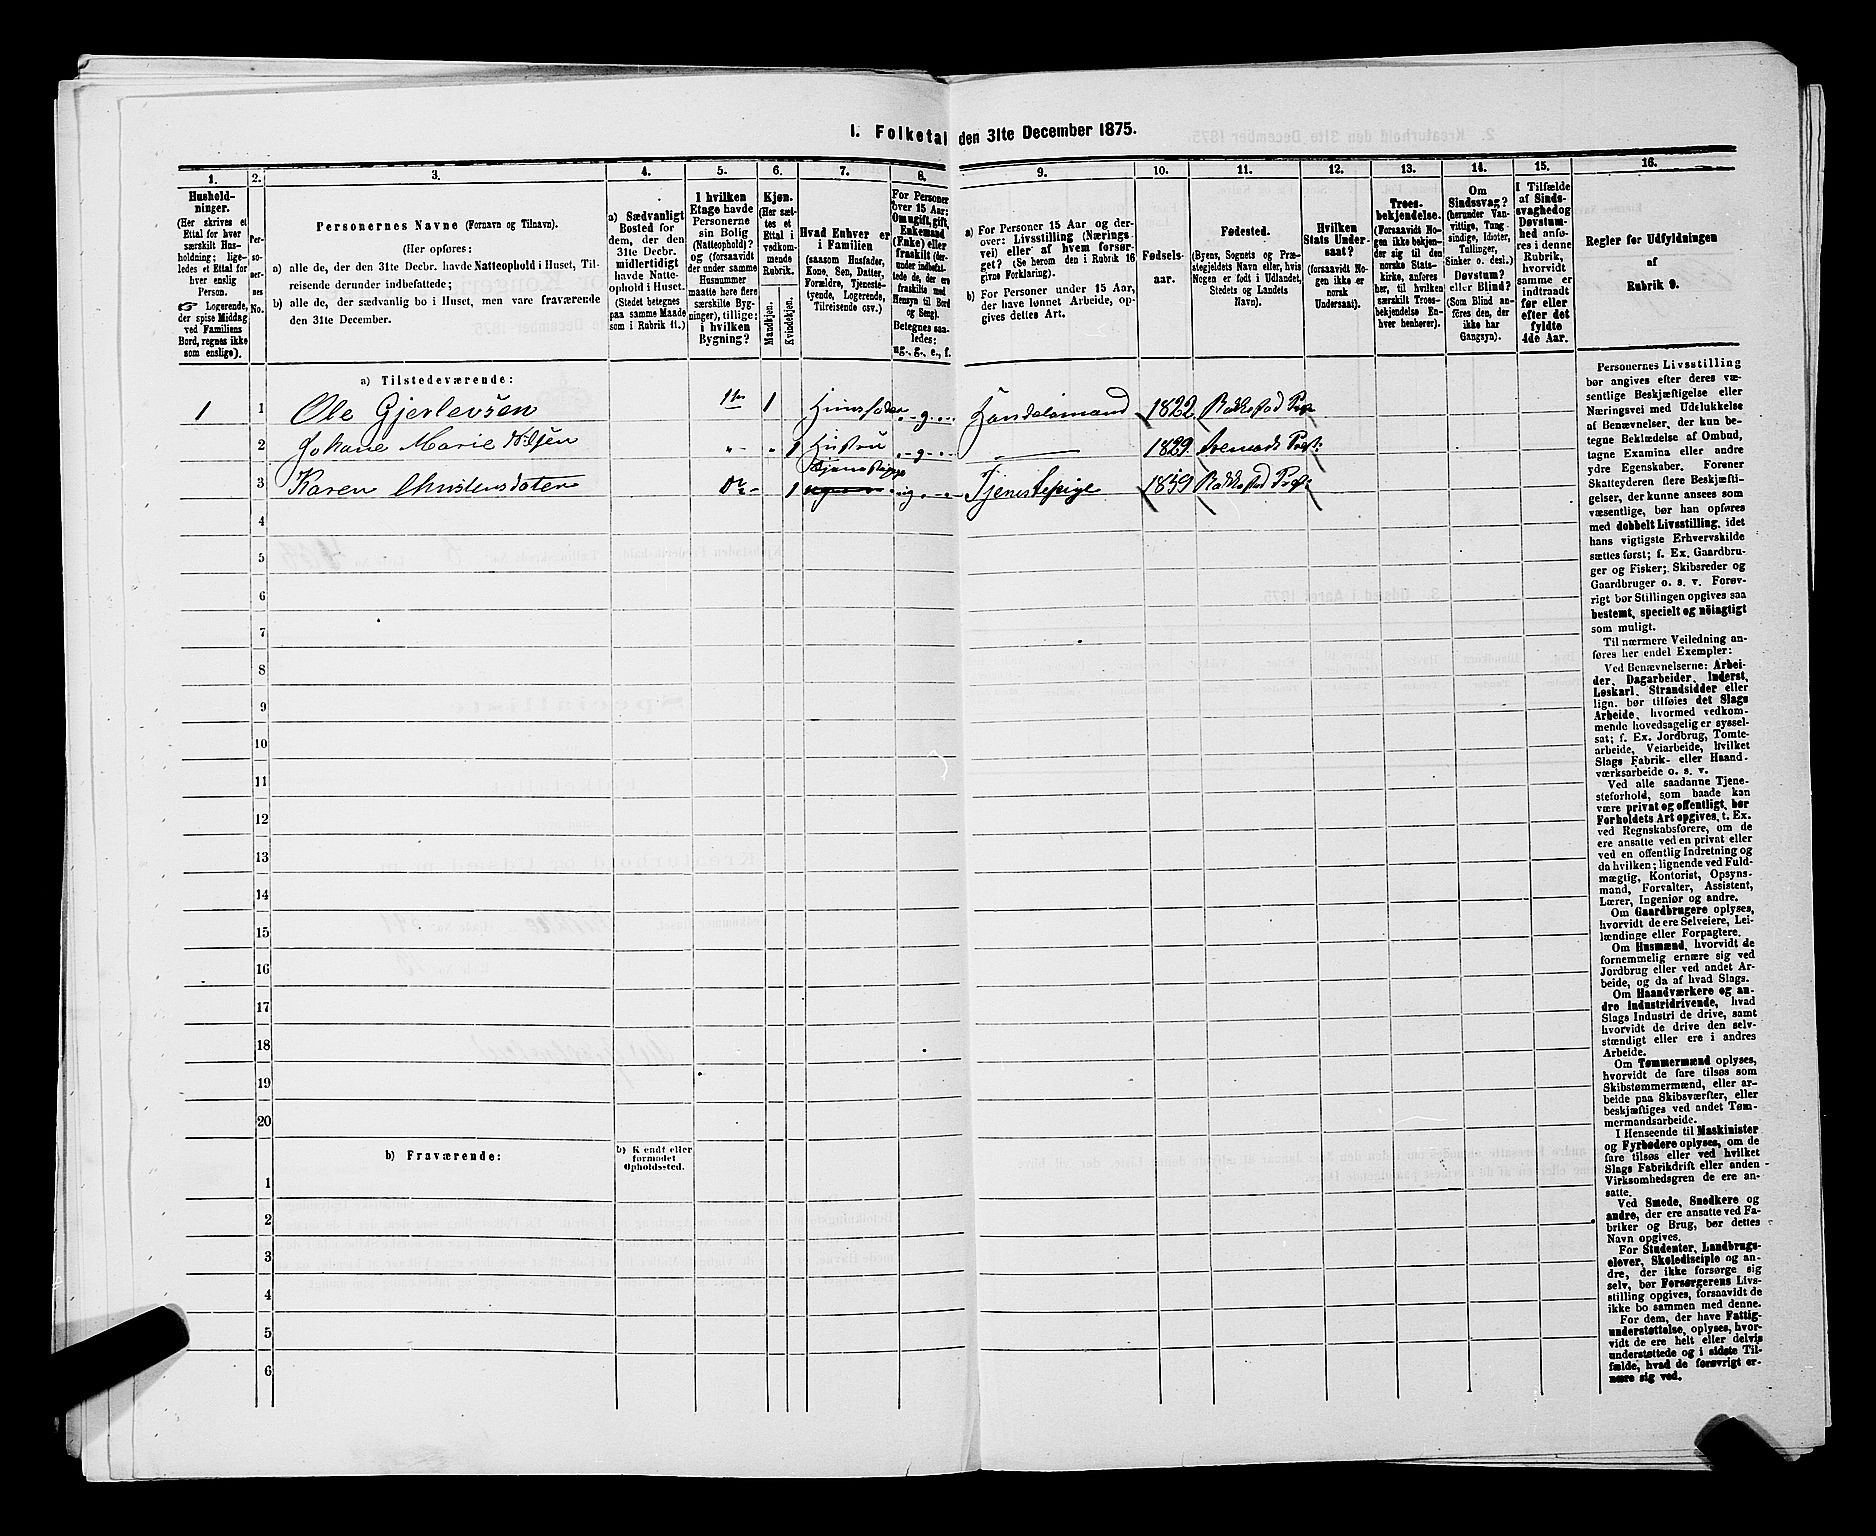 I. Folketal den 31te December 1875.
1.
Hushold-
ninger.
(Her skrives et
Ettal for hver
særskilt Hus-
holdning; lige-
ledes et Ettal for
hver enslig
Person.
☞ Logerende,
der spise Middag
ved Familiens
Bord, regnes ikke
som enslige).
2.
Per-
so-
ner-
nes
No.
3.
Personernes Navne (Fornavn og Tilnavn).
(Her opføres:
a) alle de, der den 31te Decbr. havde Natteophold i Huset, Til-
reisende derunder indbefattede;
b) alle de, der sædvanlig bo i Huset, men vare fraværende
den 31te December.
4.
a) Sædvanligt
Bosted for
dem, der den
31te Decbr.
midlertidigt
havde Natte-
ophold i Huset.
(Stedet betegnes
paa samme Maade
som i Rubrik 11.)
5.
I hvilken
Etage havde
Personerne
sin Bolig
(Natteophold)?
og (forsaavidt
der under samme
Husnummer
maatte høre flere
særskilte Byg-
ninger), tillige:
i hvilken
Bygning?
6.
Kjøn.
(Her sæt-
tes et
Ettal i
vedkom-
mende
Rubrik.
Mandkjøn.
Kvindekjøn.
7.
Hvad Enhver er
i Familien
(saasom Husfader,
Kone, Søn, Datter,
Forældre, Tjeneste-
tyende, Logerende,
Tilreisende osv.)
8.
For Personer
over 15 Aar:
Om ugift, gift,
Enkemand
(Enke) eller
fraskilt (der-
under indbefat-
tede de, der ere
fraskilte med
Hensyn til Bord
og Seng).
Betegnes saa-
ledes:
ug., g., e., f.
9.
a) For Personer 15 Aar og der-
over: Livsstilling (Nærings-
vei) eller af hvem forsør-
get? (Se herom den i Rubrik 16
givne Forklaring).
b) For Personer under 15 Aar,
der have lønnet Arbeide, op-
gives dettes Art.
10.
Fødsels-
aar.
11.
Fødested.
(Byens, Sognets og Præ-
stegjeldets Navn eller, hvis
Nogen er født i Udlandet,
Stedets og Landets
Navn).
12.
Hvilken
Stats Under-
saat?
(forsaavidt No-
gen ikke er
norsk
Undersaat).
13.
Troes-
bekjendelse.
(Forsaavidt No-
gen ikke bekjen-
der sig til den
norske Stats-
kirke, anføres
her, til hvilken
særskilt Troes-
bekjendelse En-
hver henhører).
14.
Om
Sindssvag?
(herunder Van-
vittige, Tung-
sindige, Idioter,
Tullinger,
Sinker o. desl.)
Døvstum?
eller Blind?
(Som Blind an-
føres den, der
ikke har
Gangsyn).
15.
I Tilfælde
af Sinds-
svaghed og
Døvstum-
hed anfø-
res i denne
Rubrik,
hvorvidt
samme er
indtraadt
før eller
efter det
fyldte
4de Aar.
16.
Regler for Udfyldningen
af
Rubrik 9.
a) Tilstedeværende:
1 1 Ole Gjerlevsen 1ste 1 Huusfader g Handelsmand 1822 Rakkestad Præ
2 Johane Marie Olsen 1 Hustru g 1829 Præst:
Tjenestepige
3 Karen Christensdatter 1 ug Tjenestepige 1859 Rakkestad Præst:
4
5
6
7
8
9
10
11
12
13
14
15
16
17
18
19
20
b) Fraværende:
b) Kjendt eller
formodet
Opholdssted.
1
2
3
4
5
6
Personernes Livsstilling
bør angives efter deres væ-
sentlige Beskjæftigelse eller
Næringsvei med Udelukkelse
af Benævnelser, der kun be-
tegne Beklædelse af Ombud,
tagne Examina eller andre
ydre Egenskaber. Forener
Skatteyderen flere Beskjæfti-
gelser, der kunne ansees som
væsentlige, bør han opføres
med dobbelt Livsstilling, idet
hans vigtigste Erhvervskilde
sættes først; f. Ex. Gaardbru-
ger og Fisker; Skibsreder og
Gaardbruger o. s. v. Forøv-
rigt bør Stillingen opgives saa
bestemt, specielt og nöiagtigt
som muligt.
Til nærmere Veiledning an-
føres her endel Exempler:
Ved Benævnelserne: Arbei-
der, Dagarbeider, Inderst,
Løskarl, Strandsidder eller
lign. bør tilføies det Slags
Arbeide, hvormed vedkom-
mende hovedsagelig er syssel-
sat; f. Ex. Jordbrug, Tomte-
arbeide, Veiarbeide, hvilket
Slags Fabrik- eller Haand-
værksarbeide o. s. v.
Ved alle saadanne Tjene-
steforhold, som baade kan
være privat og offentligt, bør
Forholdets Art opgives, t. Ex.
ved Regnskabsførere, om de
ere ansatte ved en privat eller
ved en offentlig Indretning og
da hvilken; lignende ved Fuld-
mægtig, Kontorist, Opsyns-
mand, Forvalter, Assistent,
Lærer, Ingeniør og andre.
Om Gaardbrugere oplyses,
hvorvidt de ere Selveiere, Lei-
lændinge eller Forpagtere.
Om Husmænd, hvorvidt de
fornemmelig ernære sig ved
Jordbrug eller ved andet Ar-
beide, og da af hvad Slags.
Om Haandværkere og an-
dre Industridrivende, hvad
Slags Industri de drive, samt
hvorvidt de drive den selv-
stændigt eller ere i andres
Arbeide.
Om Tømmermænd oplyses,
hvorvidt de fare tilsøs som
Skibstømmermænd, eller ar-
beide paa Skibsværfter, eller
beskjæftiges ved andet Tøm-
mermandsarbeide.
I Henseende til Maskinister
og Fyrbødere oplyses, om de
fare tilsøs eller ved hvilket
Slags Fabrikdrift eller anden
Virksomhedsgren de ere an-
satte.
Ved Smede, Snedkere og
andre, der ere ansatte ved Fa-
briker og Brug, bør dettes
Navn opgives.
For Studenter, Landbrugs-
elever, Skoledisciple og an-
dre, der ikke forsørge sig
selv, bør Forsørgerens Livs-
stilling opgives, forsaavidt de
ikke bo sammen med denne.
For dem, der have Fattig-
understøttelse, oplyses, hvor-
vidt de ere helt eller delvis
understøttede og i sidste Til-
fælde, hvad de forøvrigt er-
nære sig ved.